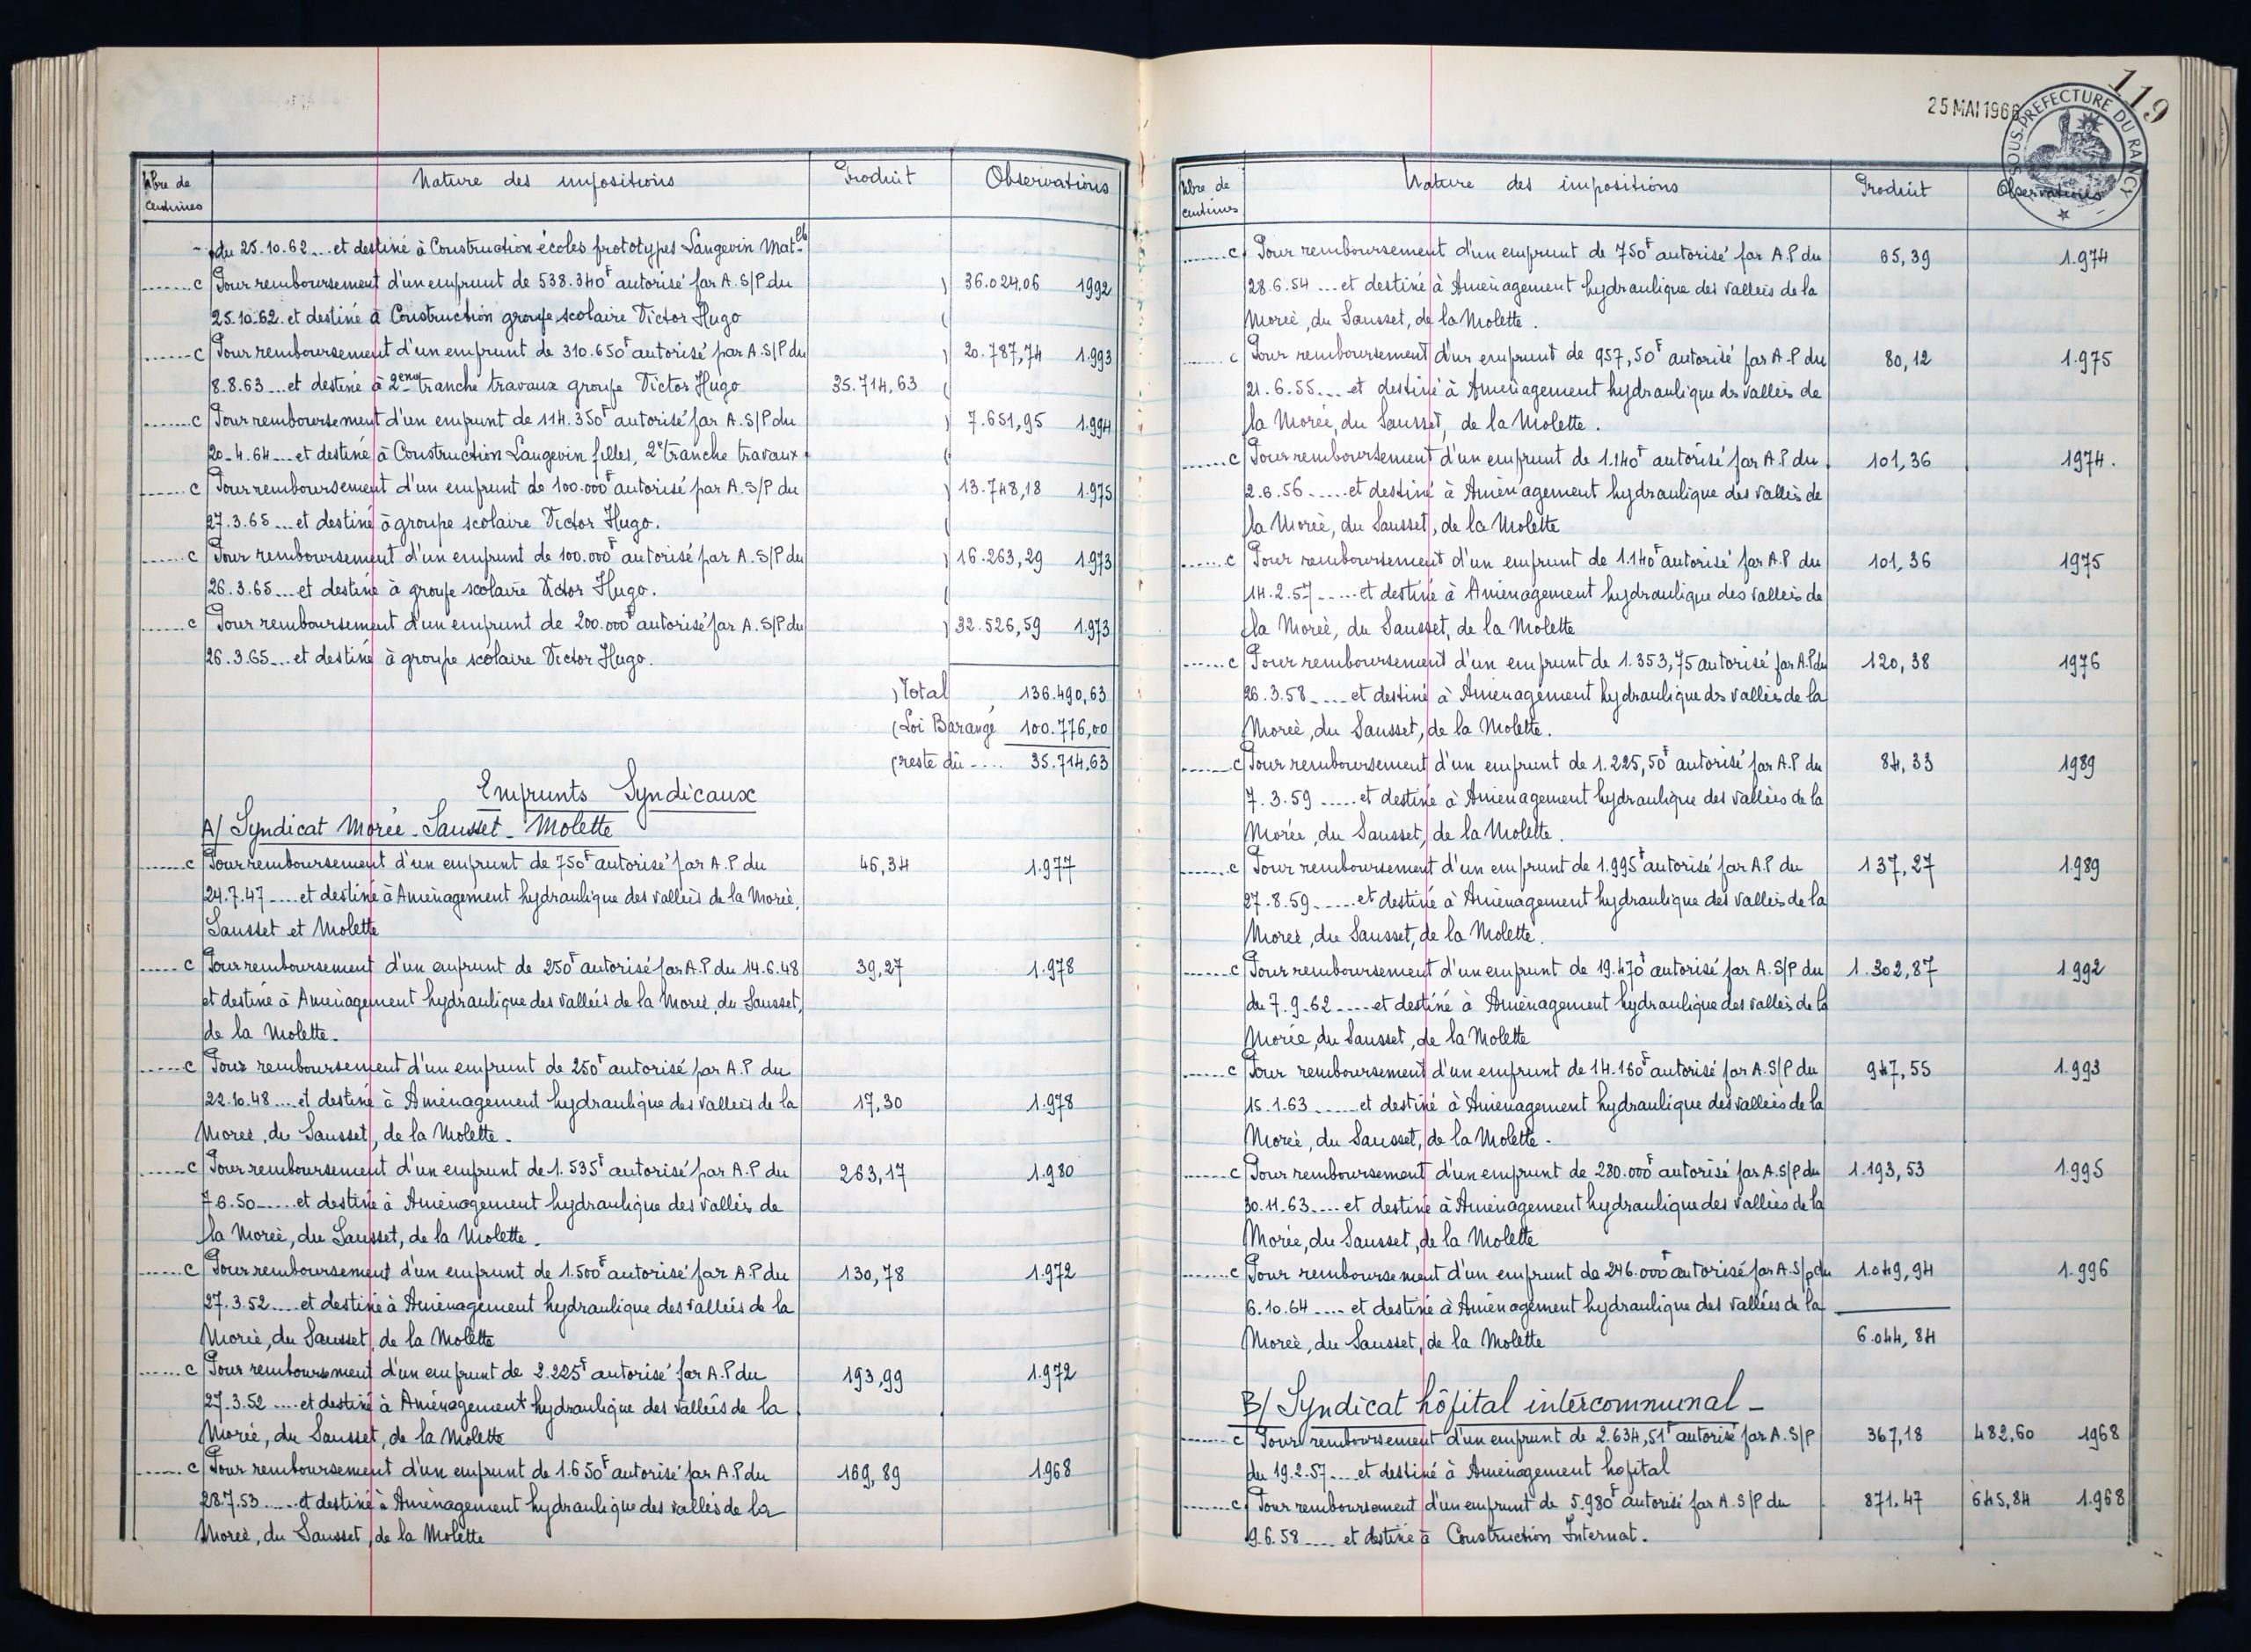 Nbre de centimes Nature des impositions Produit Observations
du 25.10.62 ... et destiné à Construction écoles prototypes Langevin Mat^lle
...... c Pour remboursement d'un emprunt de 538.340F autorisé par A.S/P du ) 36.024,06 1992
25.10.62 et destiné à Construction groupe scolaire Victor Hugo (
...... c Pour remboursement d'un emprunt de 310.650F autorisé par A.S/P du ) 20.787,74 1.993
8.8.63 ... et destiné à 2eme tranche travaux groupe Victor Hugo 35.714,63 (
...... c Pour remboursement d'un emprunt de 114.350F autorisé par A.S/P du ) 7.651,95 1.994
20.4.64 ... et destiné à Construction Langevin filles, 2e tranche travaux (
...... c Pour remboursement d'un emprunt de 100.000F autorisé par A.S/P du ) 13.748,18 1.975
27.3.65 ... et destiné à groupe scolaire Victor Hugo. (
...... c Pour remboursement d'un emprunt de 100.000F autorisé par A.S/P du ) 16.263,29 1.973
26.3.65 ... et destiné à groupe scolaire Victor Hugo. (
...... c Pour remboursement d'un emprunt de 200.000F autorisé par A.S/P du ) 32.526,59 1.973
26.3.65 ... et destiné à groupe scolaire Victor Hugo.
) Total 136.490,63
( Loi Barangé 100.776,00
( reste dû .... 35.714,63
Emprunts Syndicaux
A/ Syndicat Morée - Sausset - Molette
...... c Pour remboursement d'un emprunt de 750F autorisé par A.P du 46,34 1.977
24.7.47 .... et destiné à Aménagement hydraulique des vallées de la Morée,
Sausset et Molette
...... c Pour remboursement d'un emprunt de 250F autorisé par A.P du 14.6.48 39,27 1.978
et destiné à Aménagement hydraulique des vallées de la Morée, du Sausset,
de la Molette.
...... c Pour remboursement d'un emprunt de 250F autorisé par A.P du
22.10.48 .... et destiné à Aménagement hydraulique des vallées de la 17,30 1.978
Morée, du Sausset, de la Molette.
...... c Pour remboursement d'un emprunt de 1.535F autorisé par A.P du 263,17 1.980
7.6.50 ..... et destiné à Aménagement hydraulique des vallées de
la Morée, du Sausset, de la Molette.
...... c Pour remboursement d'un emprunt de 1.500F autorisé par A.P du 130,78 1.972
27.3.52 .... et destiné à Aménagement hydraulique des vallées de la
Morée, du Sausset, de la Molette
...... c Pour remboursement d'un emprunt de 2.225F autorisé par A.P du 193,99 1.972
27.3.52 .... et destiné à Aménagement hydraulique des vallées de la
Morée, du Sausset, de la Molette
...... c Pour remboursement d'un emprunt de 1.650F autorisé par A.P du 169,89 1.968
28.7.53 ..... et destiné à Aménagement hydraulique des vallées de la
Morée, du Sausset, de la Molette
119
25 MAI 1966
SOUS-PREFECTURE DU RAINCY
Nbre de centimes Nature des impositions Produit Observations
...... c Pour remboursement d'un emprunt de 750F autorisé par A.P du 65,39 1.974
28.6.54 ... et destiné à Aménagement hydraulique des vallées de la
Morée, du Sausset, de la Molette.
...... c Pour remboursement d'un emprunt de 957,50F autorisé par A.P du 80,12 1.975
21.6.55 ... et destiné à Aménagement hydraulique des vallées de
la Morée, du Sausset, de la Molette.
...... c Pour remboursement d'un emprunt de 1.140F autorisé par A.P du 101,36 1974.
2.6.56 ..... et destiné à Aménagement hydraulique des vallées de
la Morée, du Sausset, de la Molette
...... c Pour remboursement d'un emprunt de 1.140F autorisé par A.P du 101,36 1975
14.2.57 ..... et destiné à Aménagement hydraulique des vallées de
la Morée, du Sausset, de la Molette
...... c Pour remboursement d'un emprunt de 1.353,75 autorisé par A.P du 120,38 1976
26.3.58 .... et destiné à Aménagement hydraulique des vallées de la
Morée, du Sausset, de la Molette.
...... c Pour remboursement d'un emprunt de 1.225,50F autorisé par A.P du 84,33 1989
7.3.59 ..... et destiné à Aménagement hydraulique des vallées de la
Morée, du Sausset, de la Molette.
...... c Pour remboursement d'un emprunt de 1.995F autorisé par A.P du 137,27 1.989
27.8.59 ..... et destiné à Aménagement hydraulique des vallées de la
Morée, du Sausset, de la Molette.
...... c Pour remboursement d'un emprunt de 19.470F autorisé par A.S/P du 1.302,87 1.992
du 7.9.62 ..... et destiné à Aménagement hydraulique des vallées de la
Morée, du Sausset, de la Molette
...... c Pour remboursement d'un emprunt de 14.160F autorisé par A.S/P du 947,55 1.993
15.1.63 ..... et destiné à Aménagement hydraulique des vallées de la
Morée, du Sausset, de la Molette.
...... c Pour remboursement d'un emprunt de 280.000F autorisé par A.S/P du 1.193,53 1.995
30.11.63 .... et destiné à Aménagement hydraulique des vallées de la
Morée, du Sausset, de la Molette
...... c Pour remboursement d'un emprunt de 246.000F autorisé par A.S/P du 1.049,94 1.996
6.10.64 .... et destiné à Aménagement hydraulique des vallées de la
Morée, du Sausset, de la Molette 6.044,84
B/ Syndicat hôpital intercommunal -
...... c Pour remboursement d'un emprunt de 2.634,51F autorisé par A.S/P 367,18 482,60 1968
du 19.2.57 .... et destiné à Aménagement hopital
...... c Pour remboursement d'un emprunt de 5.980F autorisé par A.S/P du 871.47 645,84 1.968
9.6.58 .... et destiné à Construction Internat.